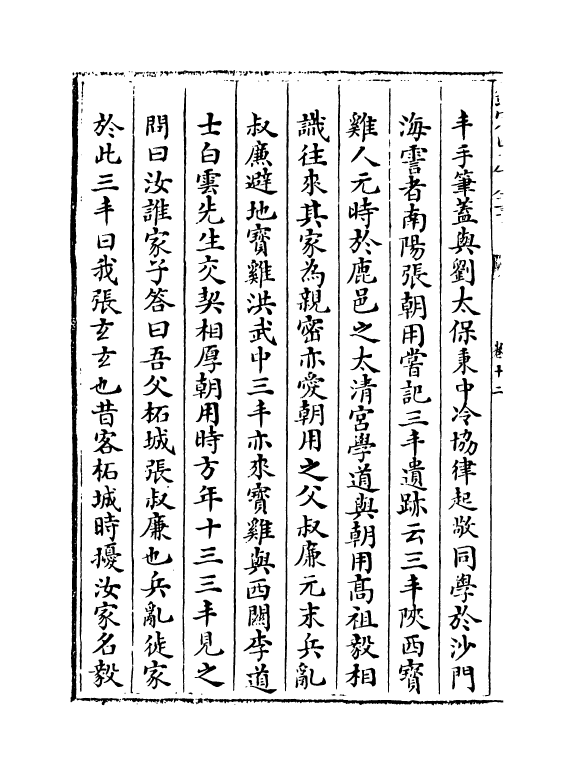 丰手筆蓋與劉太保秉中冷協律起敬同學於沙門
海雲者南陽張朝用嘗記三丰遺跡云三丰陜西寳
雞人元時於鹿邑之太清宮學道與朝用髙祖毅相
識往來其家為親密亦愛朝用之父叔廉元末兵亂
叔廉避地寳雞洪武中三丰亦來寳雞與西關李道
士白雲先生交契相厚朝用時方年十三三丰見之
問曰汝誰家子答曰吾父柘城張叔廉也兵亂徙家
於此三丰曰我張玄玄也昔客柘城時擾汝家名毅
卷十二